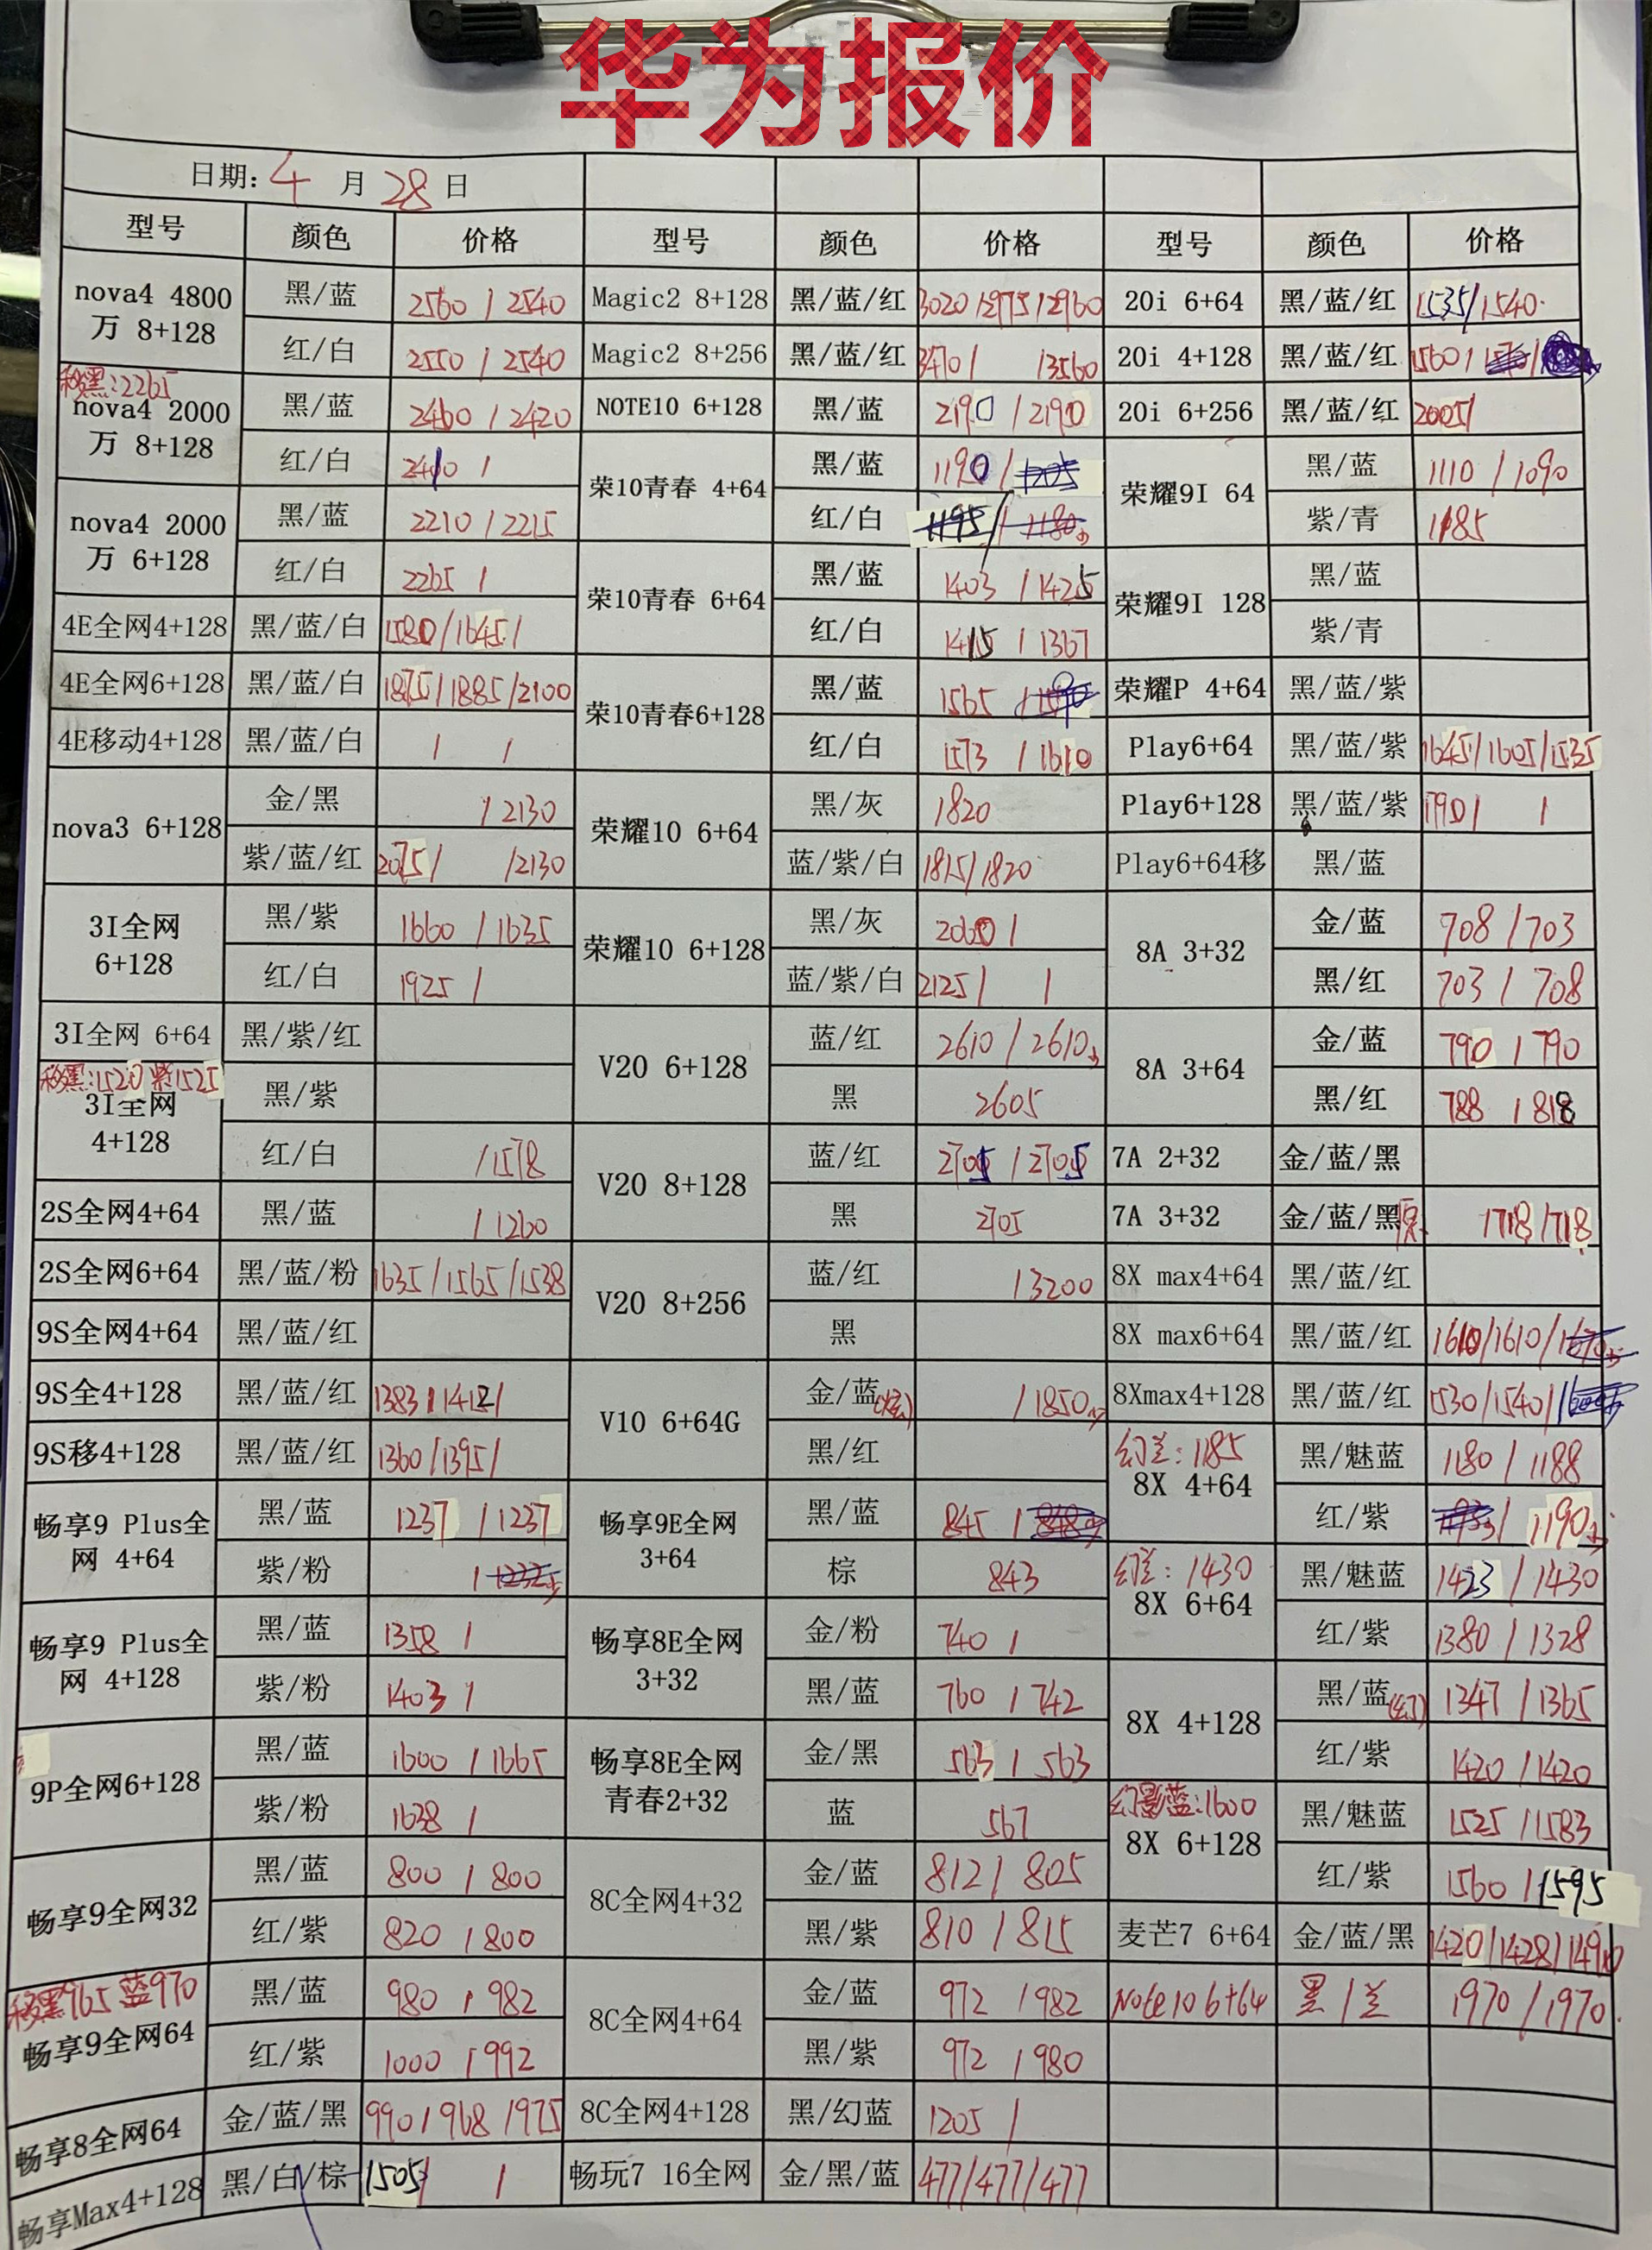 华为报价
日期: 4 月 28 日
型号 颜色 价格 型号 颜色 价格 型号 颜色 价格
nova4 4800万 8+128 黑/蓝 2560 / 2540
红/白 2550 / 2540
移黑:2265
nova4 2000万 8+128 黑/蓝 2460 / 2420
红/白 2410 /
nova4 2000万 6+128 黑/蓝 2210 / 2215
红/白 2265 /
4E全网4+128 黑/蓝/白 1580/1645/
4E全网6+128 黑/蓝/白 1875/1885/2100
4E移动4+128 黑/蓝/白 / /
nova3 6+128 金/黑 / 2130
紫/蓝/红 2075/ /2130
3I全网 6+128 黑/紫 1660 / 1635
红/白 1925 /
3I全网 6+64 黑/紫/红
移黑:1520 紫1525
3I全网 4+128 黑/紫
红/白 /1578
2S全网4+64 黑/蓝 / 1260
2S全网6+64 黑/蓝/粉 1635/1565/1538
9S全网4+64 黑/蓝/红
9S全4+128 黑/蓝/红 1383/1412/
9S移4+128 黑/蓝/红 1360/1395/
畅享9 Plus全网 4+64 黑/蓝 1237 / 1237
紫/粉 /
畅享9 Plus全网 4+128 黑/蓝 1358 /
紫/粉 1403 /
9P全网6+128 黑/蓝 1600 / 1665
紫/粉 1638 /
畅享9全网32 黑/蓝 800 / 800
红/紫 820 / 800
移黑965 蓝970
畅享9全网64 黑/蓝 980 / 982
红/紫 1000 / 992
畅享8全网64 金/蓝/黑 990/968/975
畅享Max4+128 黑/白/棕 1505/ /
Magic2 8+128 黑/蓝/红 3020/2975/2960
Magic2 8+256 黑/蓝/红 3470/ /3560
NOTE10 6+128 黑/蓝 2190 / 2190
荣10青春 4+64 黑/蓝 1190 / 1205
红/白 1195 / 1180
荣10青春 6+64 黑/蓝 1403 / 1425
红/白 1415 / 1367
荣10青春6+128 黑/蓝 1565 /
红/白 1573 / 1610
荣耀10 6+64 黑/灰 1820
蓝/紫/白 1815/1820
荣耀10 6+128 黑/灰 2060 /
蓝/紫/白 2125/ /
V20 6+128 蓝/红 2610 / 2610少
黑 2605
V20 8+128 蓝/红 2705 / 2705
黑 2705
V20 8+256 蓝/红 / 3200
黑
V10 6+64G 金/蓝(炫) / 1850少
黑/红
畅享9E全网 3+64 黑/蓝 845 /
棕 843
畅享8E全网 3+32 金/粉 740 /
黑/蓝 760 / 742
畅享8E全网青春2+32 金/黑 563 / 563
蓝 567
8C全网4+32 金/蓝 812 / 805
黑/紫 810 / 815
8C全网4+64 金/蓝 972 / 982
黑/紫 972 / 980
8C全网4+128 黑/幻蓝 1205 /
畅玩7 16全网 金/黑/蓝 477/477/477
20i 6+64 黑/蓝/红 1535/1540
20i 4+128 黑/蓝/红 1560 /
20i 6+256 黑/蓝/红 2005/
荣耀9I 64 黑/蓝 1110 / 1090
紫/青 1185
荣耀9I 128 黑/蓝
紫/青
荣耀P 4+64 黑/蓝/紫
Play6+64 黑/蓝/紫 1645/1605/1535
Play6+128 黑/蓝/紫 1790/ /
Play6+64移 黑/蓝
8A 3+32 金/蓝 708 / 703
黑/红 703 / 708
8A 3+64 金/蓝 790 / 790
黑/红 788 / 818
7A 2+32 金/蓝/黑
7A 3+32 金/蓝/黑 /718/718
8X max4+64 黑/蓝/红
8X max6+64 黑/蓝/红 1610/1610/
8Xmax4+128 黑/蓝/红 1530/1540/
幻兰:1185
8X 4+64 黑/魅蓝 1180 / 1188
红/紫 / 1190少
幻兰:1430
8X 6+64 黑/魅蓝 1423 / 1430
红/紫 1380 / 1328
8X 4+128 黑/蓝(幻) 1347 / 1365
红/紫 1420 / 1420
幻影蓝:1600
8X 6+128 黑/魅蓝 1525 / 1583
红/紫 1560 / 1595
麦芒7 6+64 金/蓝/黑 1420/1428/1490
Note10 6+64 黑/兰 1970 / 1970